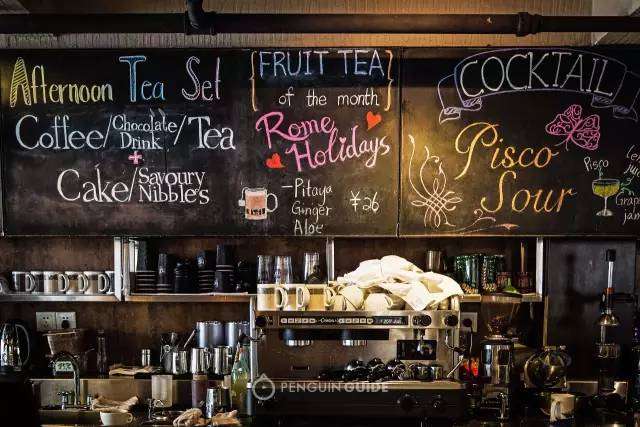 Afternoon Tea Set
Coffee/Chocolate Drink/Tea
+
Cake/Savoury Nibble's
FRUIT TEA
of the month
Rome
Holidays
-Pitaya
Ginger
Aloe
¥26
COCKTAIL
Pisco
Sour
Pisco
PENGUIN GUIDE